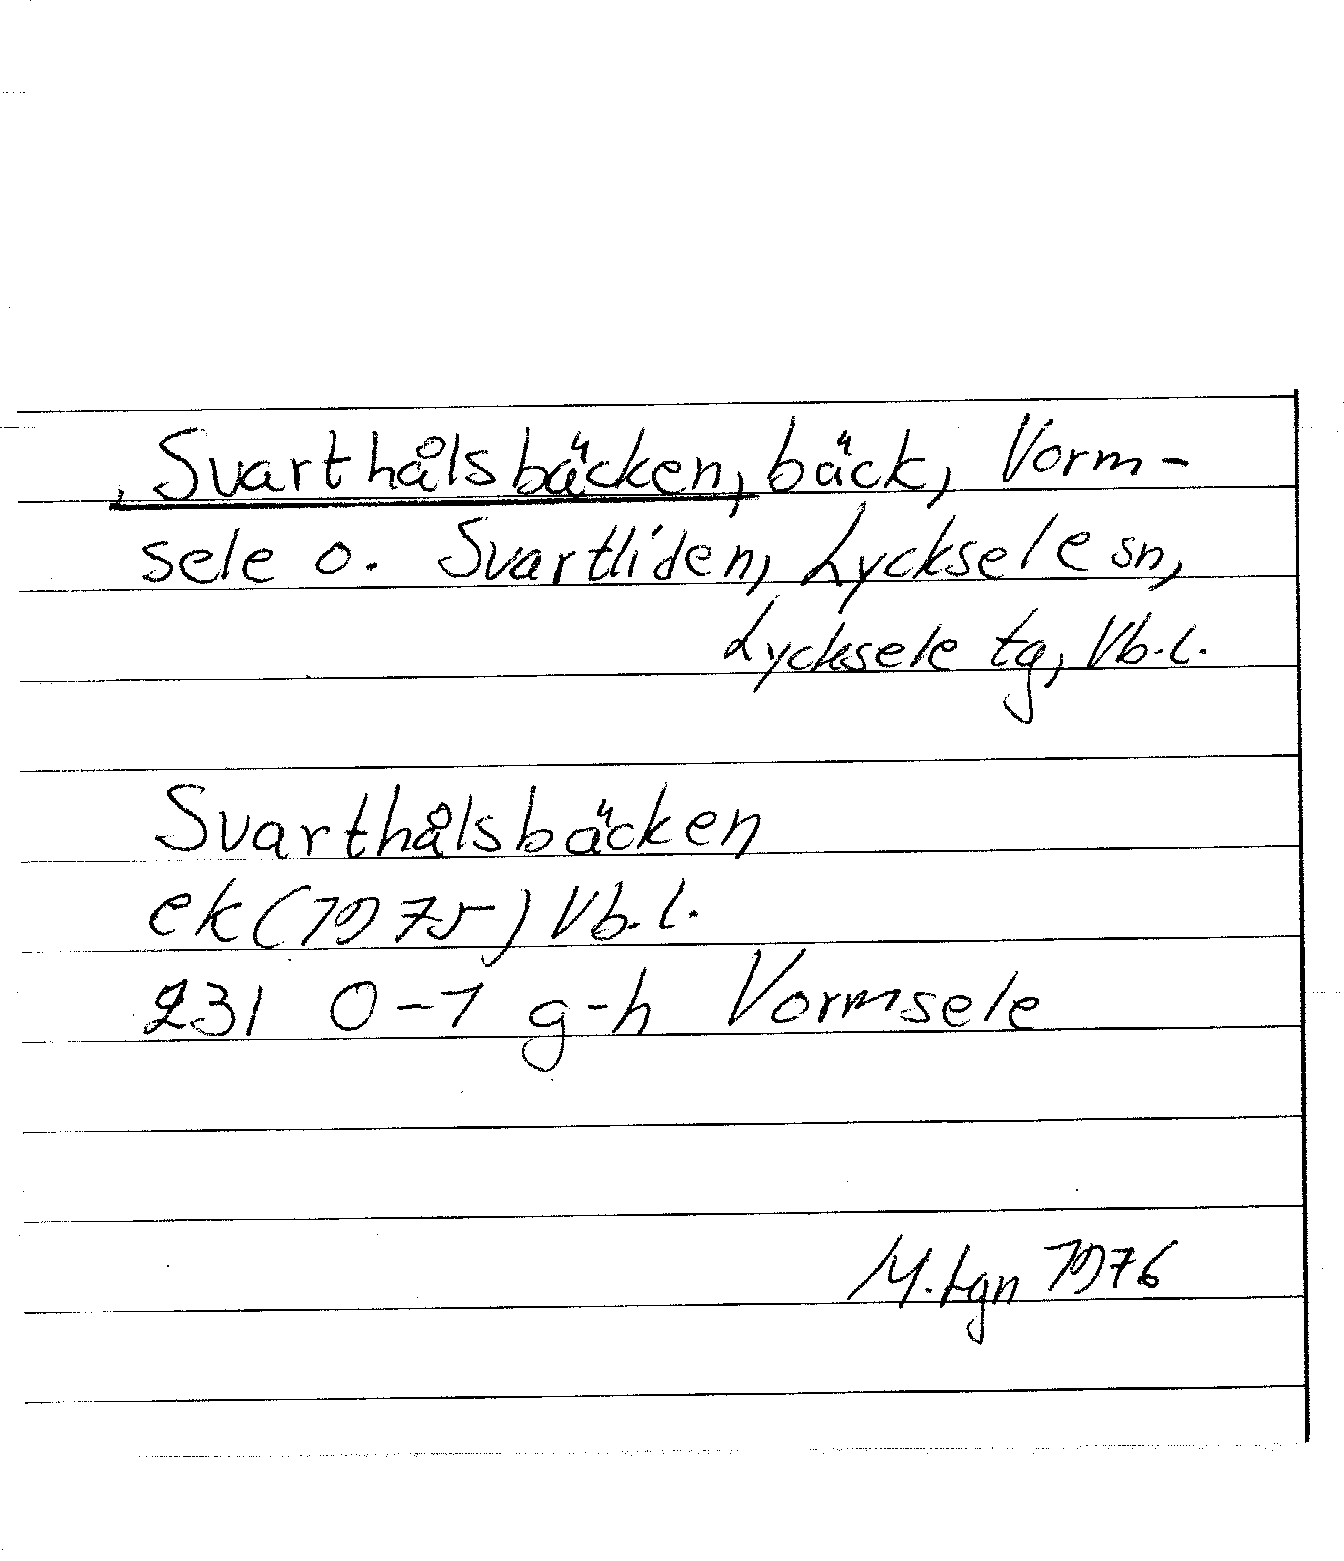 Svarthålsbäcken, bäck, Vorm-
sele o. Svartliden, Lycksele sn,
Lycksele tg, Vb.l.
Svarthålsbäcken
ek (1975) Vb.l.
231 0-1 g-h Vormsele
M.Lgn 1976